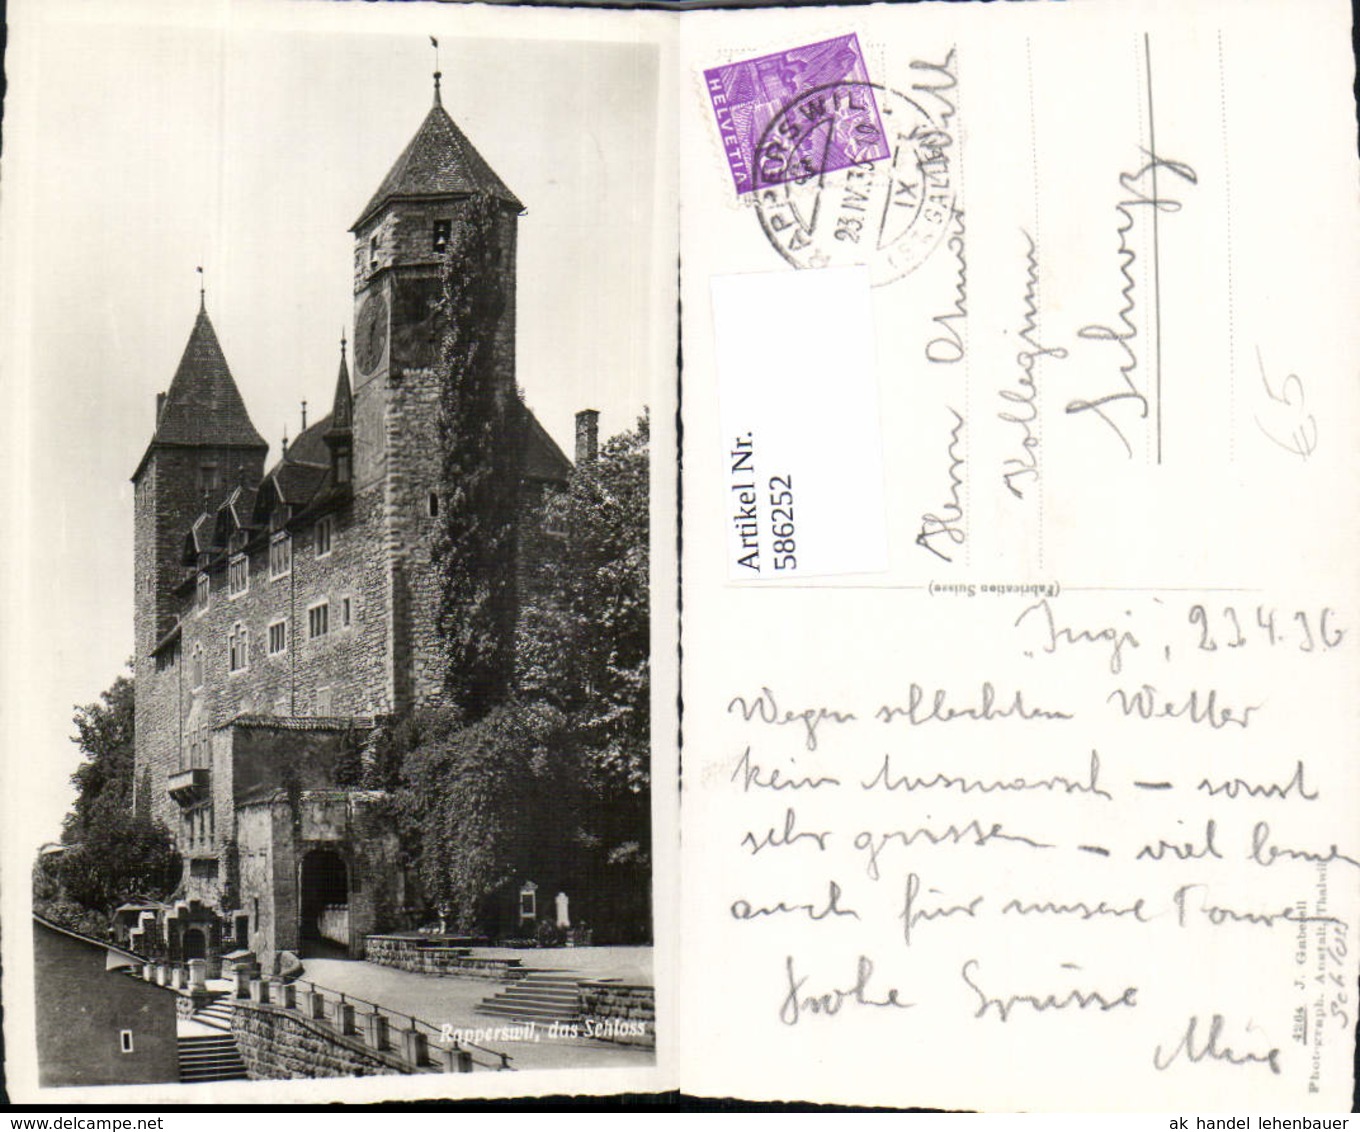 Rapperswil, das Schloss
HELVETIA
RAPPERSWIL
23.IV.36
IX
(ST. GALLEN)
Artikel Nr.
586252
Herrn Othmar
Kollegium
Schwyz
€5
(Fabrication Suisse)
"Jugi", 23.4.36
Wegen schlechtem Wetter
kein Ausmarsch – sonst
sehr – viel
auch für unsere
Frohe Grüsse
4264 J. Gaberell
Photograph. Anstalt, Thalwil
Schloss
ak handel lehenbauer